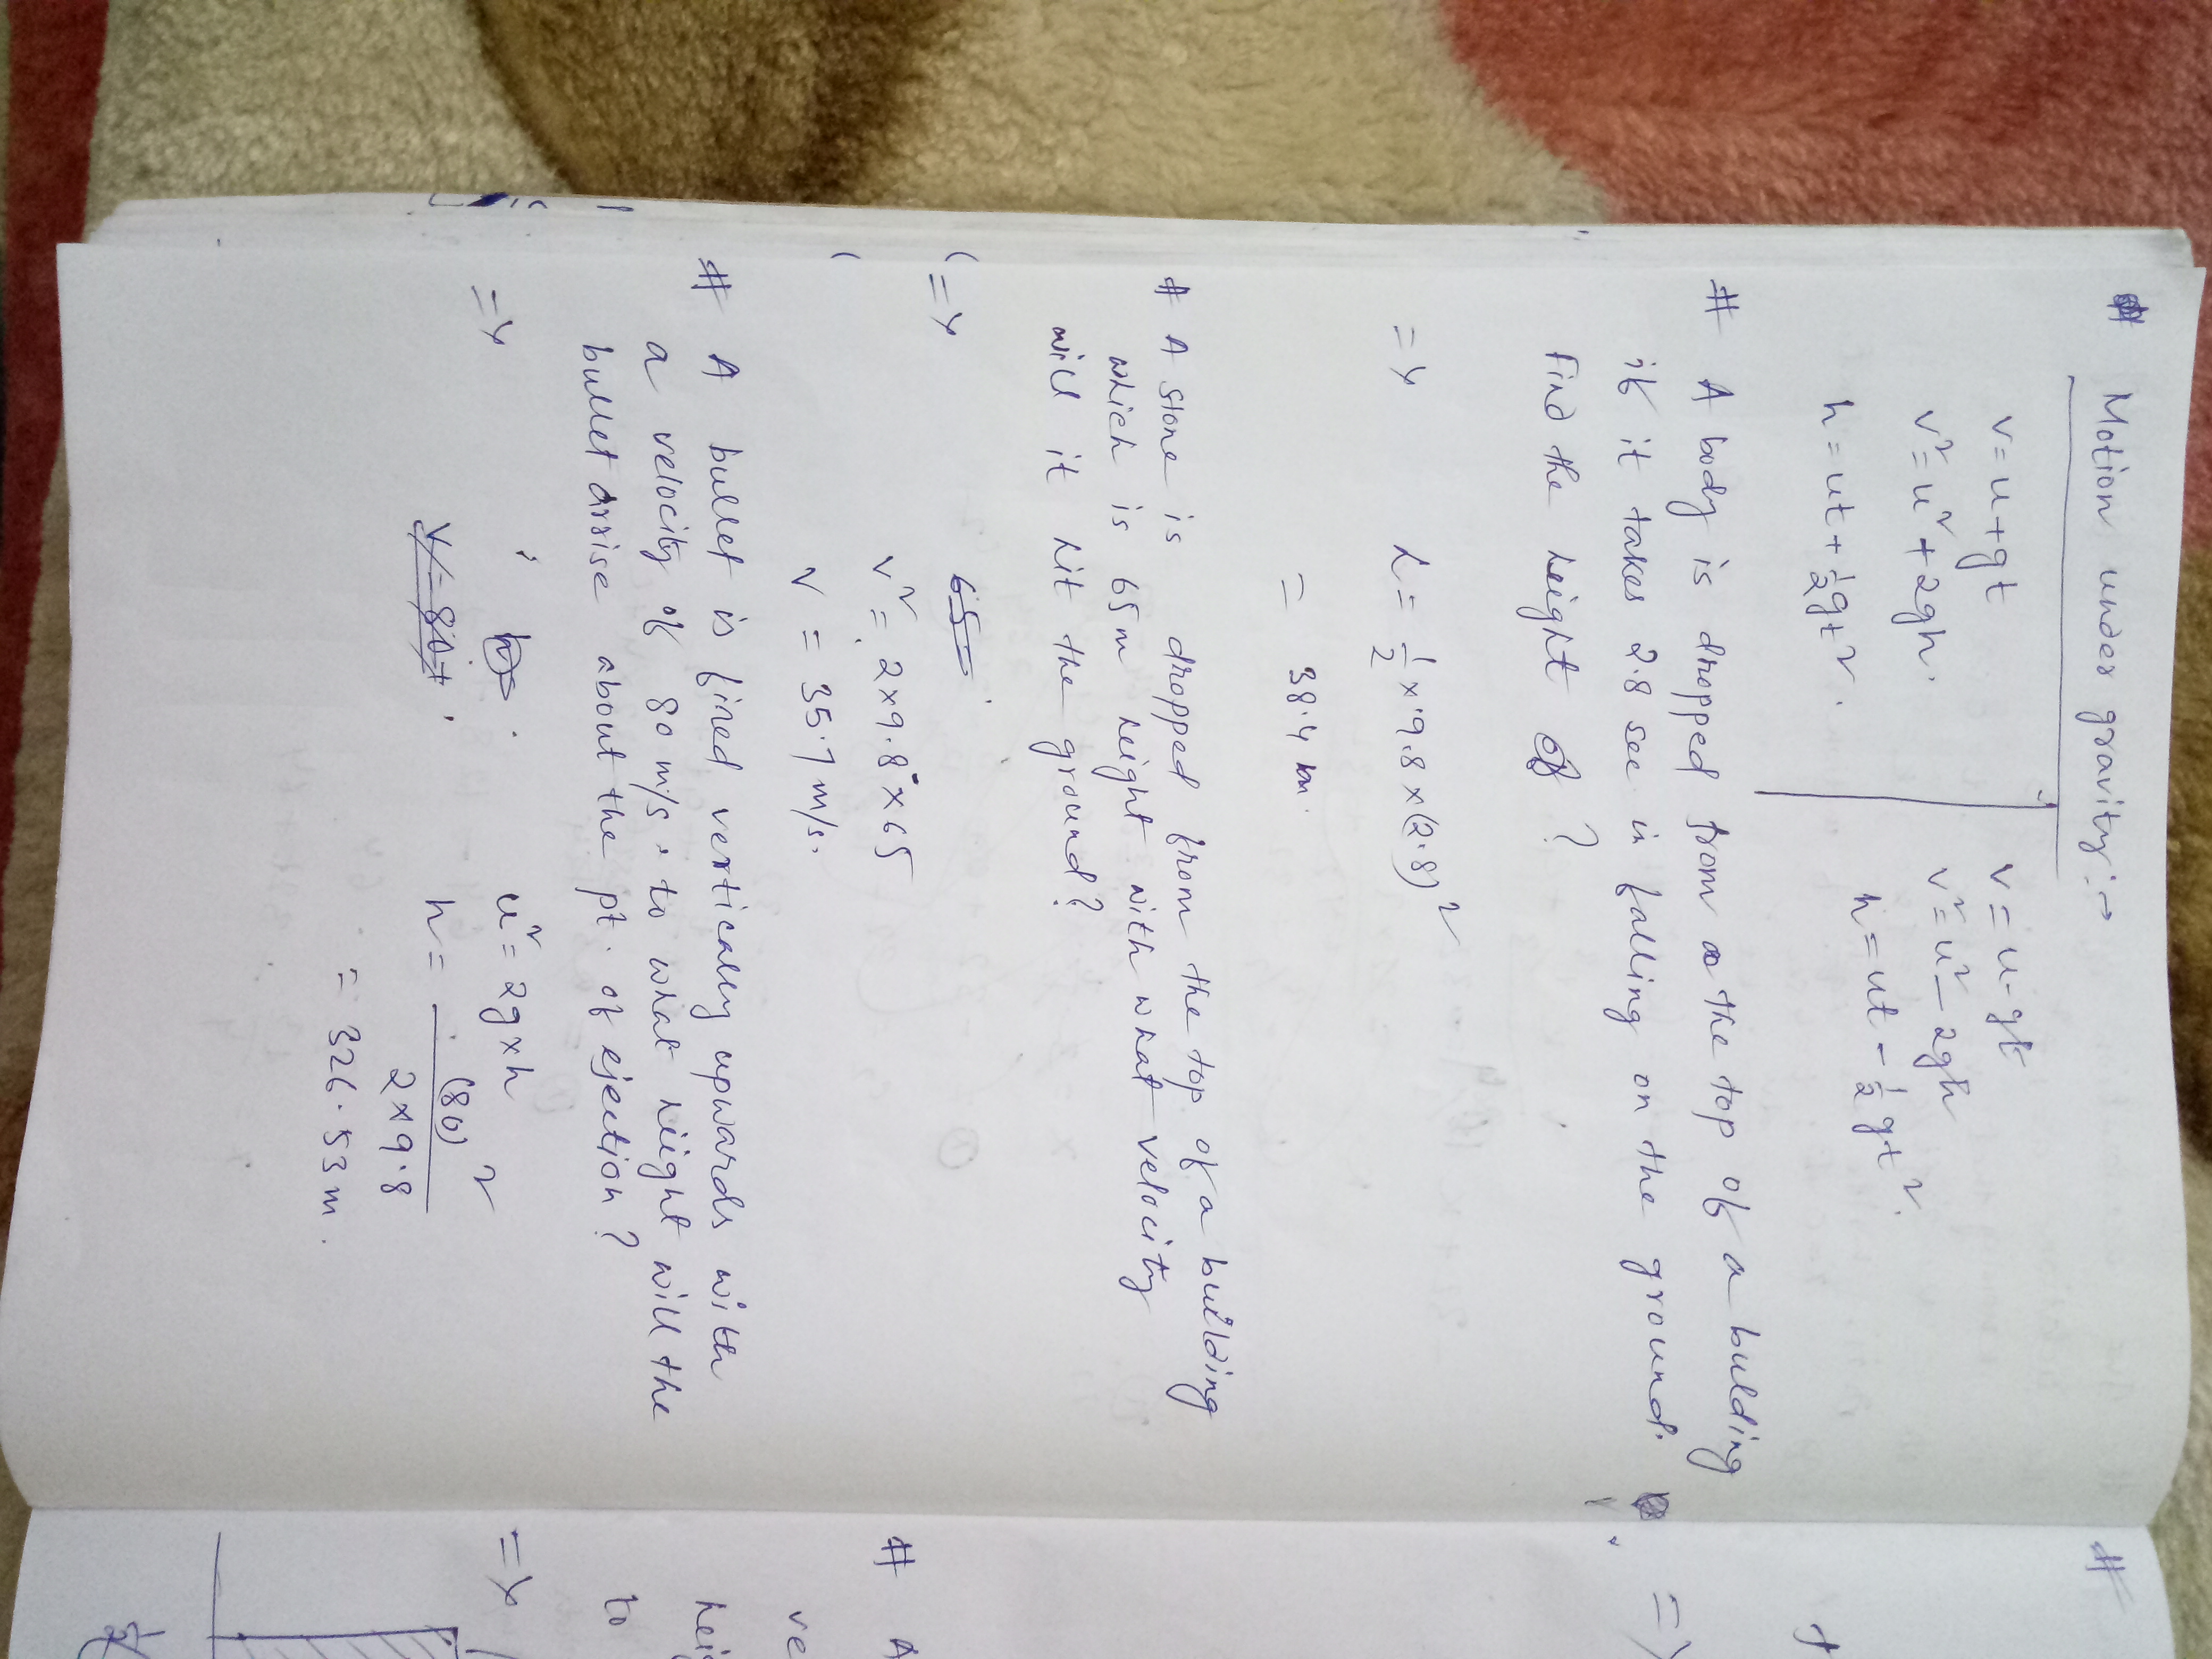 # Motion under gravity :→
v = u + gt
v² = u² + 2gh.
h = ut + 1/2 gt².
v = u - gt
v² = u² - 2gh
h = ut - 1/2 gt².
# A body is dropped from the top of a bulding
if it takes 2.8 sec in falling on the ground.
Find the height of ?
=> h = 1/2 × 9.8 × (2.8)²
= 38.4 m.
# A stone is dropped from the top of a building
which is 65m height with what velocity
will it hit the ground?
=> 65=
v² = 2×9.8×65
v = 35.7 m/s.
# A bullet is fired vertically upwards with
a velocity of 80 m/s. to what hiight will the
bullet arrise about the pt. of ejection ?
=> h=
v = 80+
u² = 2g×h
h = (80)² / 2×9.8
= 326.53 m.
#
=>
# A
ve
heig
to
=>
1/2